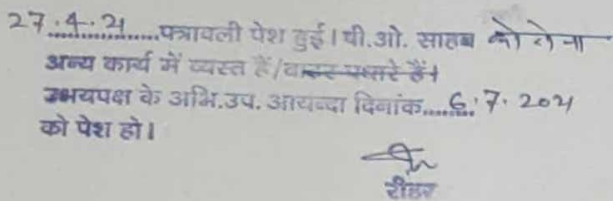 27.4.21.....पत्रावली पेश हुई। पी.ओ. साहब कोरोना
अन्य कार्य में व्यस्त हैं/बाहर पधारे हैं।
उभयपक्ष के अभि.उप. आयन्दा दिनांक....6.7.2021
को पेश हो।
रीडर